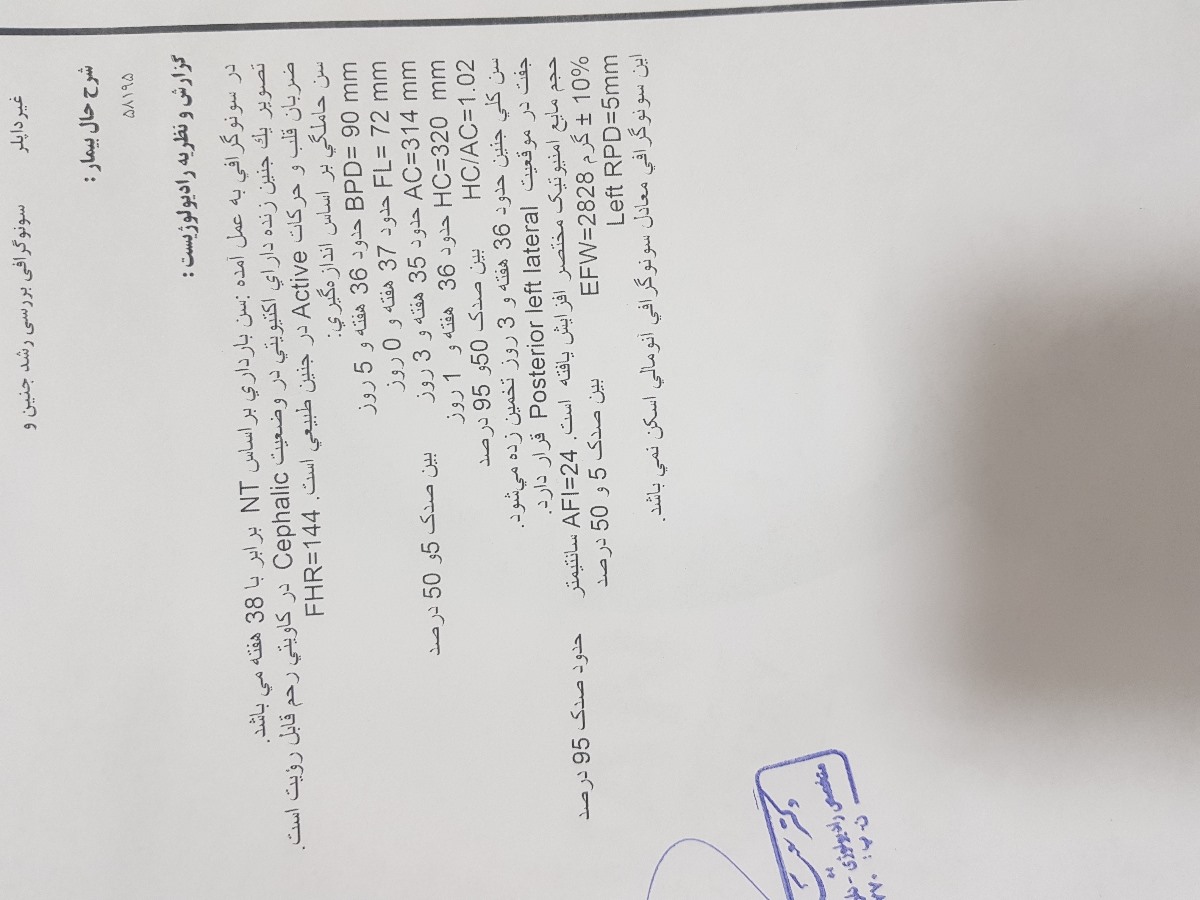 سونوگرافی بررسی رشد جنین و غیرداپلر
شرح حال بیمار :
۵۸۱۹۵
گزارش و نظریه رادیولوژیست :
در سونوگرافي به عمل آمده :سن بارداري براساس NT برابر با 38 هفته مي باشد.
تصویر يك جنین زنده داراي اکتیویتي در وضعیت Cephalic در کاویتي رحم قابل رؤیت است.
ضربان قلب و حرکات Active در جنین طبیعي است. FHR=144
سن حاملگي بر اساس اندازه‌گیري:
BPD= 90 mm حدود 36 هفته و 5 روز
FL= 72 mm حدود 37 هفته و 0 روز
AC=314 mm حدود 35 هفته و 3 روز بین صدک 5و 50 درصد
HC=320 mm حدود 36 هفته و 1 روز
HC/AC=1.02 بین صدک 50و 95 درصد
سن کلي جنین حدود 36 هفته و 3 روز تخمین زده مي‌شود.
جفت در موقعیت Posterior left lateral قرار دارد.
حجم مایع امنیوتیک مختصر افزایش یافته است. AFI=24 سانتیمتر حدود صدک 95 درصد
EFW=2828 گرم ± 10% بین صدک 5 و 50 درصد
Left RPD=5mm
این سونوگرافي معادل سونوگرافي انومالي اسکن نمي باشد.
دکتر
متخصص رادیولوژی -
ن . پ :